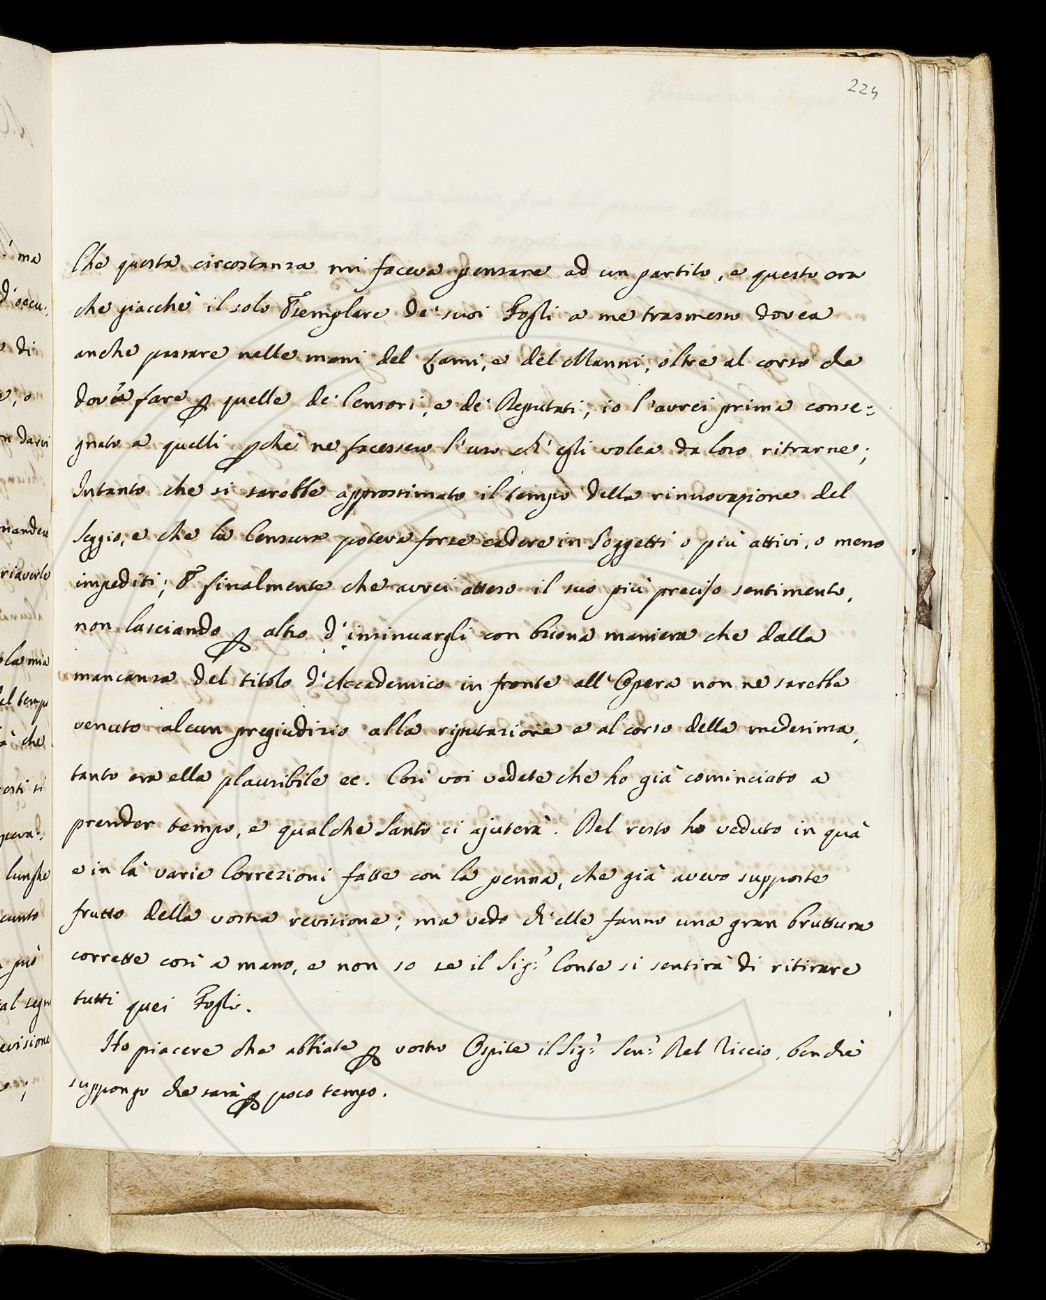 224
Che questa circostanza mi faceva pensare ad un partito, e questo era
che giacchè il solo Esemplare de' suoi Fogli a me trasmesso dovea
anche passare nelle mani del Lami, e del Manni, oltre al corso che
dovea fare p quelle de' Censori, e de' Deputati, io l'avrei prima conse=
gnato a quelli pchè ne facessero l'uso ch'egli volea da loro ritrarne;
Intanto che si sarebbe approssimato il tempo della rinnovazione del
Seggio, e che la Censura poteva forse cadere in Soggetti o più attivi, o meno
impediti; E finalmente che avrei atteso il suo più preciso sentimento,
non lasciando p altro d'insinuargli con buona maniera che dalla
mancanza del titolo d'Accademico in fronte all'Opera non ne sarebbe
venuto alcun pregiudizio alla riputazione e al corso della medesima,
tanto era ella plausibile ec. Così voi vedete che ho già cominciato a
prender tempo, e qualche Santo ci ajuterà. Del resto ho veduto in quà
e in là varie Correzioni fatte con la penna, che già avevo supposte
frutto della vostra revisione; ma vedo ch'elle fanno una gran bruttura
corrette così a mano, e non so se il Sig.r Conte si sentirà di ritirare
tutti quei Fogli.
Ho piacere che abbiate p vostro Ospite il Sig.r Sen.r Del Riccio, benchè
suppongo che sarà p poco tempo.